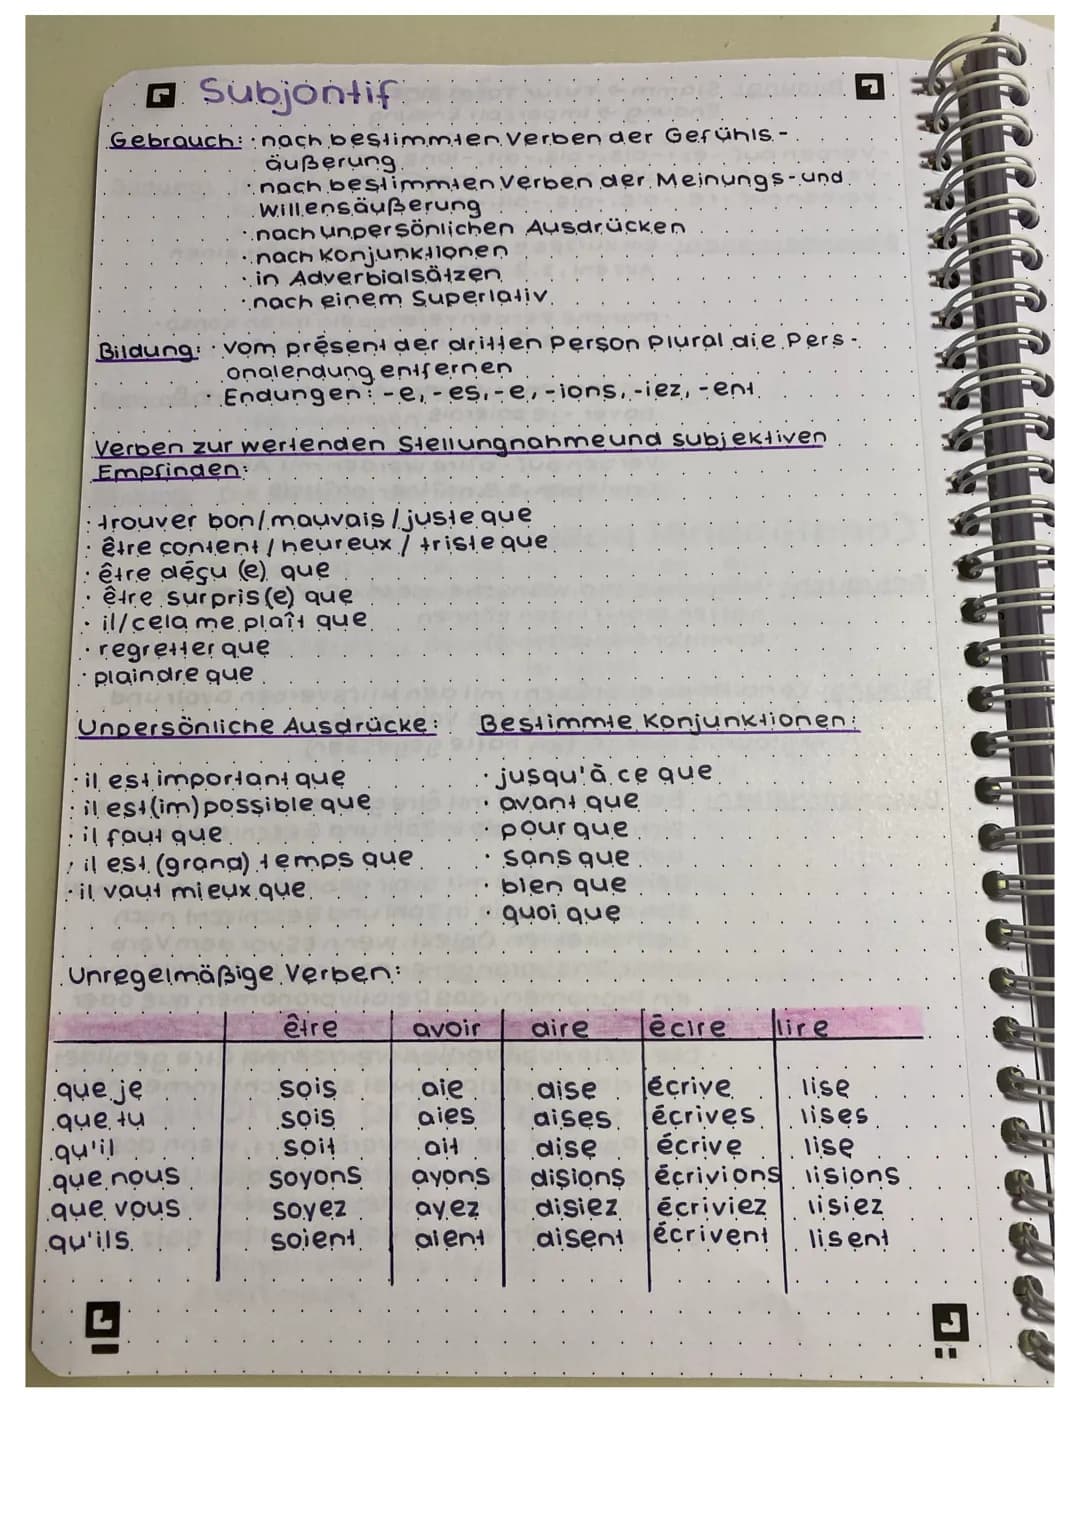 Subjontif
Gebrauch: · nach bestimmten Verben der Gefühls-
äußerung
· nach bestimmten Verben der Meinungs- und
willensäußerung
· nach unpersönlichen Ausdrücken
· nach Konjunktionen
· in Adverbialsätzen
· nach einem Superlativ
Bildung: · vom présent der dritten Person Plural die Pers-
onalendung entfernen
· Endungen: -e, -es, -e, -ions, -iez, -ent
Verben zur wertenden Stellungnahme und subjektiven
Empfinden:
· trouver bon/mauvais/juste que
· être content/heureux/triste que
· être déçu(e) que
· être surpris(e) que
· il/cela me plaît que
· regretter que
· plaindre que
Unpersönliche Ausdrücke: Bestimmte Konjunktionen:
· il est important que · jusqu'à ce que
· il est (im)possible que · avant que
· il faut que · pour que
· il est (grand) temps que · sans que
· il vaut mieux que · bien que
· quoi que
Unregelmäßige Verben:
être avoir dire écire lire
que je sois aie dise écrive lise
que tu sois aies dises écrives lises
qu'il soit ait dise écrive lise
que nous soyons ayons disions écrivions lisions
que vous soyez ayez disiez écriviez lisiez
qu'ils soient aient disent écrivent lisent